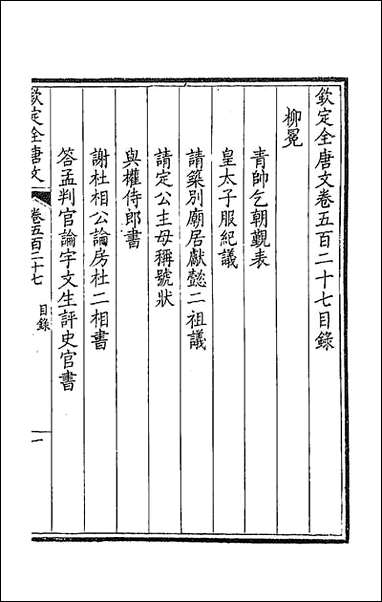 欽定全唐文卷五百二十七目錄
柳冕
青帥乞朝覲表
皇太子服紀議
請築別廟居獻懿二祖議
請定公主母稱號狀
與權侍郎書
謝杜相公論房杜二相書
答孟判官論宇文生評史官書
欽定全唐文 卷五百二十七 目錄 一